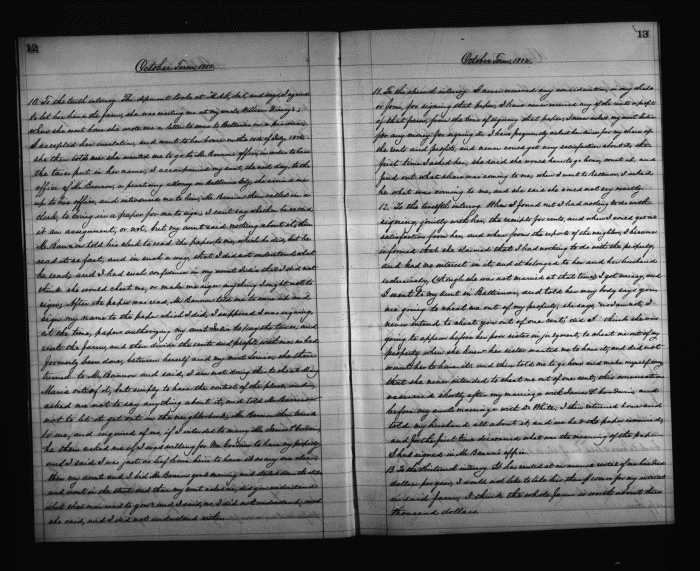 12
October Term, 18
10. To the tenth interog. The deponent looks at Exhibit, and says I agreed
to let her have the farm, she was writing me at my uncle William
when she went home she wrote me a letter to come to Baltimore on a
I accepted her invitation, and went to her home on the of July,
she then told me she wanted me to go to Mr office, in order to have
the taxes put in her name, I accompanied my aunt, the next day to the
office of Mr a practising attorney in Baltimore City, she carried me
up to his office, and introduced me to him, Mr then called in a
clerk, to bring in a paper for me to sign, I can't say whether he
it an assignment, or not, but my aunt said nothing about it, then
Mr told his clerk to read the paper to me, which he did, but he
read it so fast, and in such a way, that I did not understand what
he read, and I had such confidence in my aunt that I did not
think she would cheat me, or make me sign anything I ought not to
sign, after the paper was read, Mr told me to come up and
sign my name to the paper which I did, I supposed I was signing
at the time, papers authorizing my aunt to pay the taxes, and
rent the farm, and then divide the rents and profits as
formerly been done, between herself and my aunt she then
turned to Mr and said, I am not doing this to cheat
Maria out of it, but simply to have the control of the place, and
asked me not to say anything about it, and told Mr
not to let it get out in the neighborhood, Mr then
to me, and inquired of me if I intended to marry
he then asked me if I was willing for Mr to have my property,
and I said I was just as lief have him to have it as any one else,
then my aunt and I bid Mr good morning and
and went in the street and then my aunt asked me, did you understand
what that man read to you? and I said, no, I did not understand, and
she said, and I did not understand either.
13
October Term, 18
11. To the eleventh interog. I never received any consideration, in any shape
or form, for signing that paper, I have never received any of the rents or profits
of that farm, since the time of signing that paper, I never asked my aunt
for any money for signing it, I have frequently asked her since for my share of
the rents and profits, and never could get any satisfaction about it, the
first time I asked her, she said she would have to go home, count it, and
find out what share was coming to me, when I went to Baltimore, I asked
her what was coming to me, and she said she could not say exactly.
12. To the twelfth interog. When I found out I had nothing to do with
signing, jointly with her, the receipts for rents, and when I could get no
satisfaction from her, and when from the reports of the neighbors, I became
informed that she claimed that I had nothing to do with the property,
and had no interest in it, and it belonged to her and her husband
exclusively (though she was not married at that time) I got uneasy, and
I went to my aunt in Baltimore, and told her every body says you
are going to cheat me out of my property, she says "no I am not, I
never intend to cheat you out of one cent," did I think she was
going to appear before her poor sister in judgment, to cheat me out of my
property when she knew her sister wanted me to have it, and did not
want her to have it, and then told me to go home and make myself easy
that she never intended to cheat me out of one cent, this conversation
occurred shortly after my marriage with James and
before my aunt's marriage with Dr White, I then returned home and
told my husband all about it, and the paper
and for the first time discovered what was the meaning of the paper
I had signed in Mr office.
13. To the thirteenth interog. It has rented at an annual rental of one hundred
dollars per year, I would not like to take less than for my interest
in said farm, I think the whole farm is worth about three
thousand dollars.